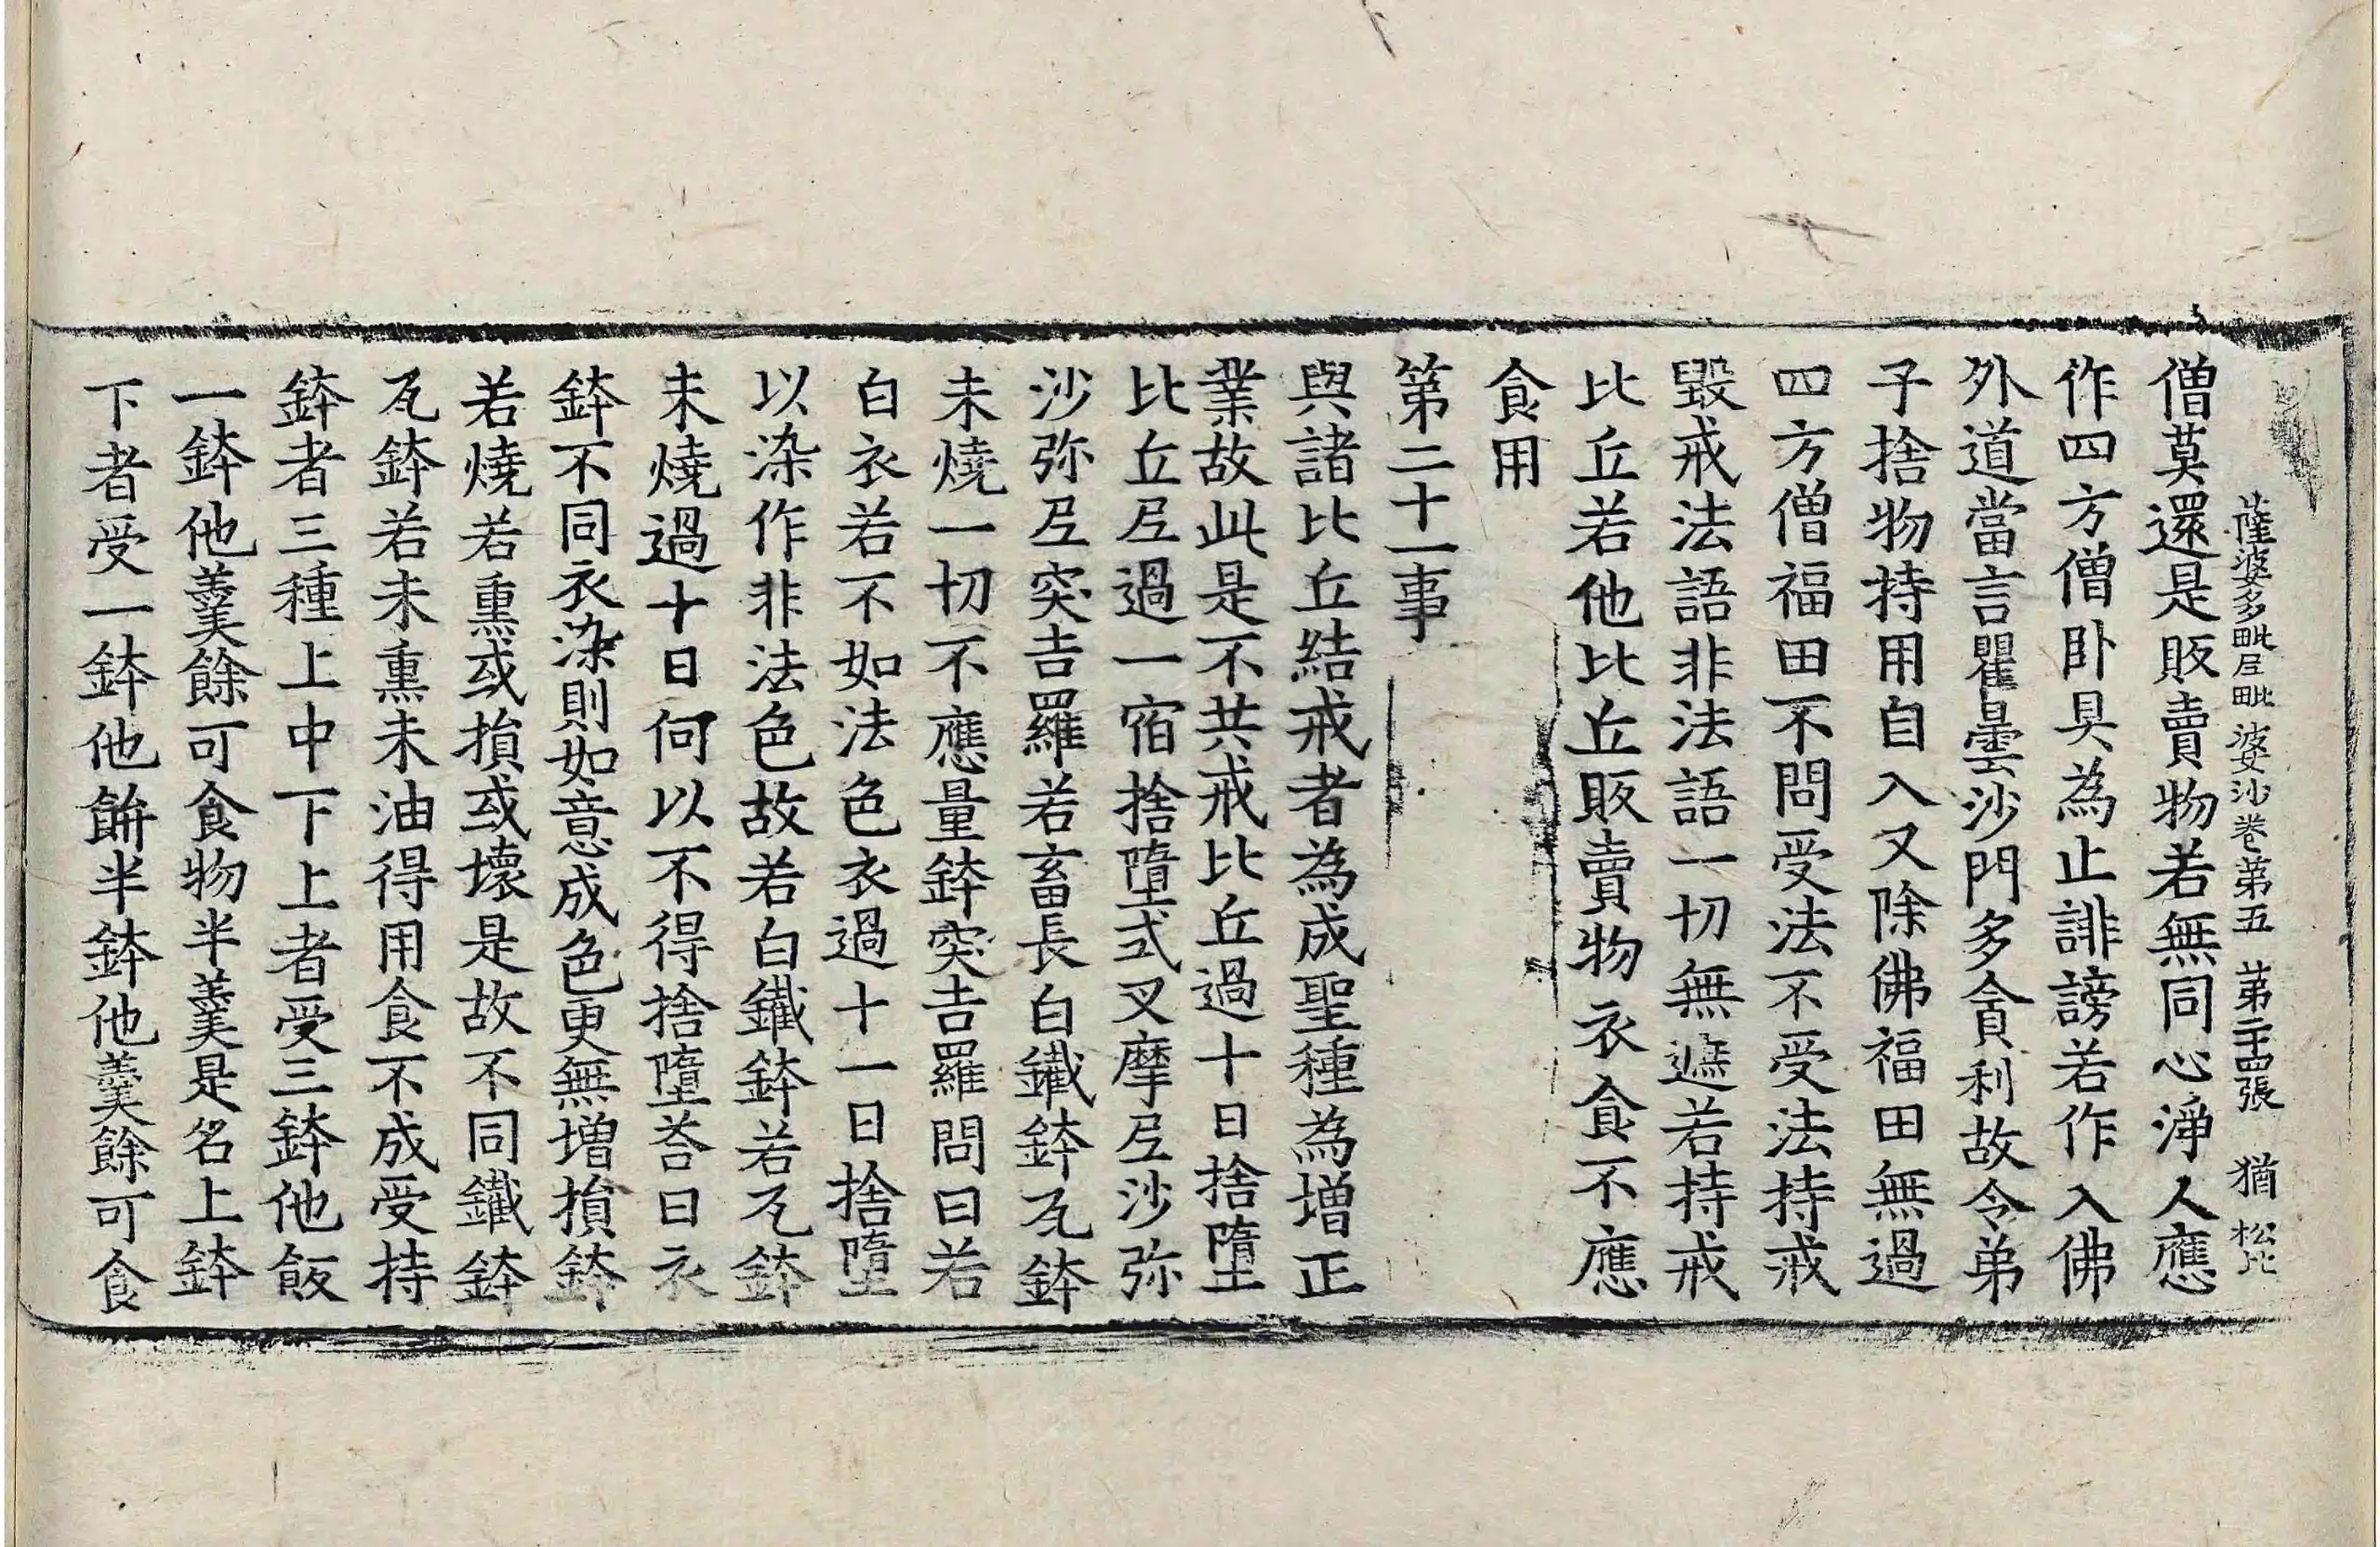 薩婆多毗尼毗婆沙卷第五 第二十四張 猶 松比
僧莫還是販賣物若無同心淨人應
作四方僧卧具為止誹謗若作入佛
外道當言瞿曇沙門多貪利故令弟
子捨物持用自入又除佛福田無過
四方僧福田不問受法不受法持戒
毀戒法語非法語一切無遮若持戒
比丘若他比丘販賣物衣食不應
食用
第二十一事
與諸比丘結戒者為成聖種為增正
業故此是不共戒比丘過十日捨墮
比丘尼過一宿捨墮式叉摩尼沙弥
沙弥尼突吉羅若畜長白鐵鉢瓦鉢
未燒一切不應量鉢突吉羅問曰若
白衣若不如法色衣過十一日捨墮
以染作非法色故若白鐵鉢若瓦鉢
未燒過十日何以不得捨墮荅曰衣
鉢不同衣染則如意成色更無增損鉢
若燒若熏或損或壞是故不同鐵鉢
瓦鉢若未熏未油得用食不成受持
鉢者三種上中下上者受三鉢他飯
一鉢他羹餘可食物半羹是名上鉢
下者受一鉢他餅半鉢他羹餘可食